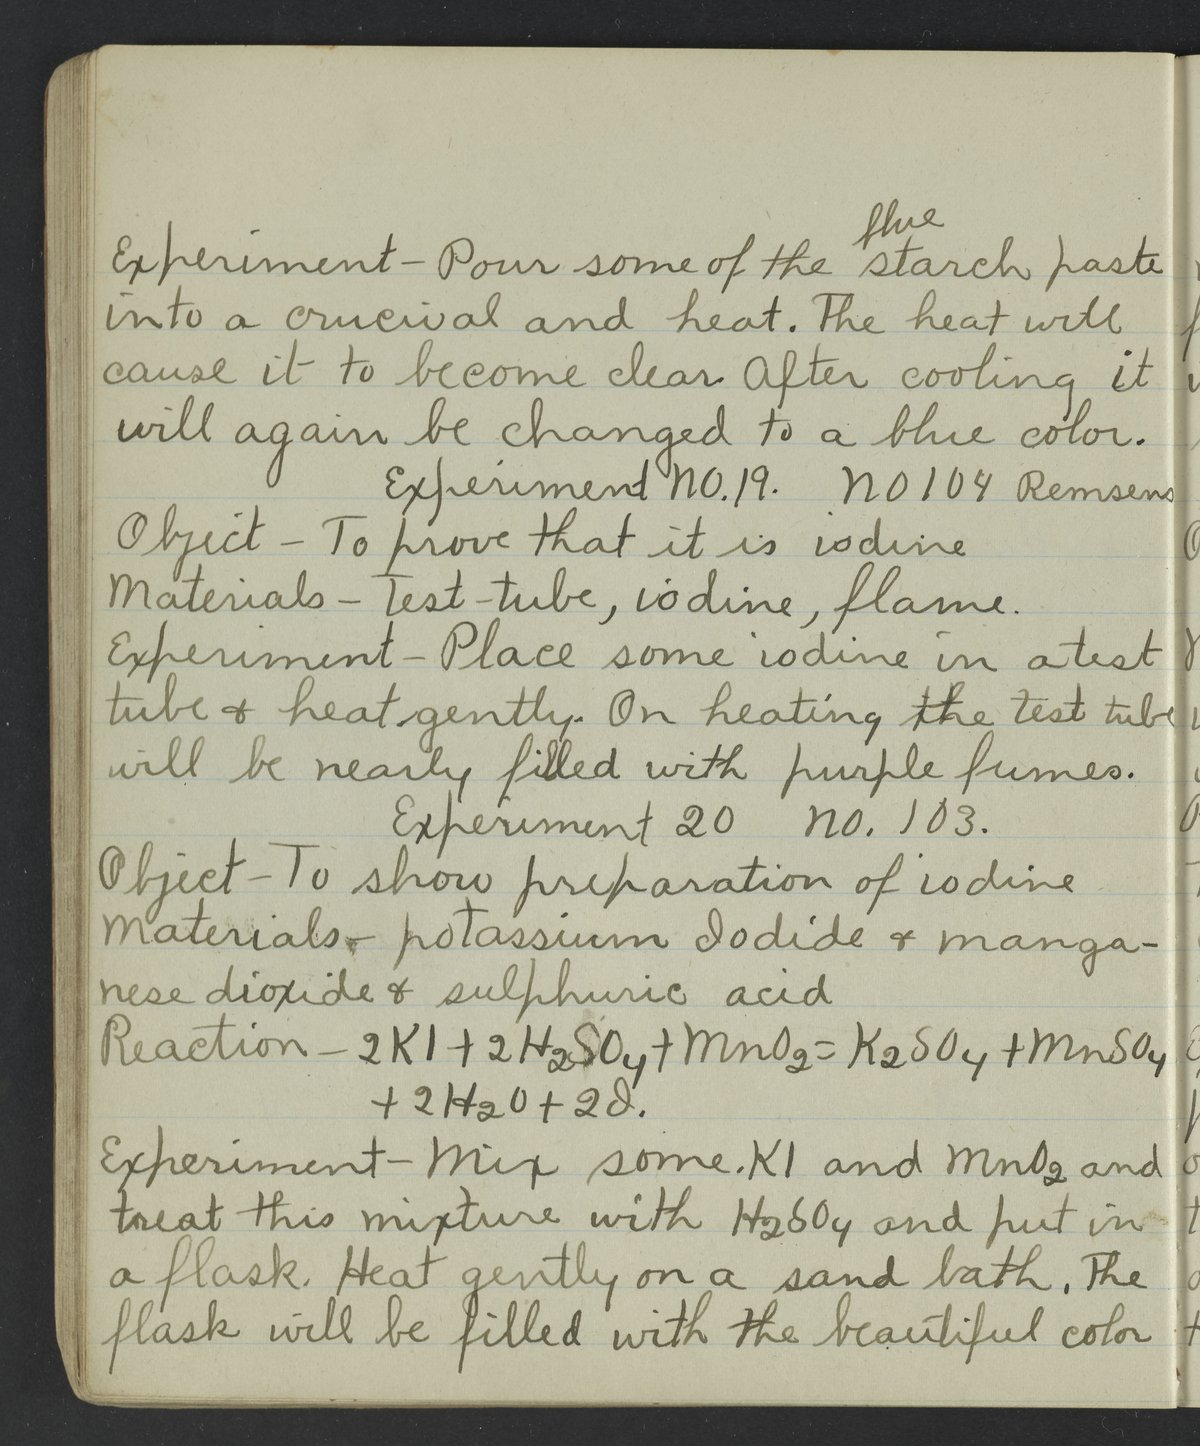 blue
Experiment - Pour some of the starch paste
into a crucival and heat. The heat will
cause it to become clear. After cooling it
will again be changed to a blue color.
Experiment No. 19. No 104 Remsens
Object - To prove that it is iodine
Materials - Test-tube, iodine, flame.
Experiment - Place some iodine in a test
tube & heat gently. On heating the test tube
will be nearly filled with purple fumes.
Experiment 20 No. 103.
Object - To show preparation of iodine
Materials - potassium Iodide & manga-
nese dioxide & sulphuric acid
Reaction - 2KI + 2H₂SO₄ + MnO₂ = K₂SO₄ + MnSO₄
+ 2H₂O + 2I.
Experiment - Mix some KI and MnO₂ and
treat this mixture with H₂SO₄ and put in
a flask. Heat gently on a sand bath. The
flask will be filled with the beautiful color